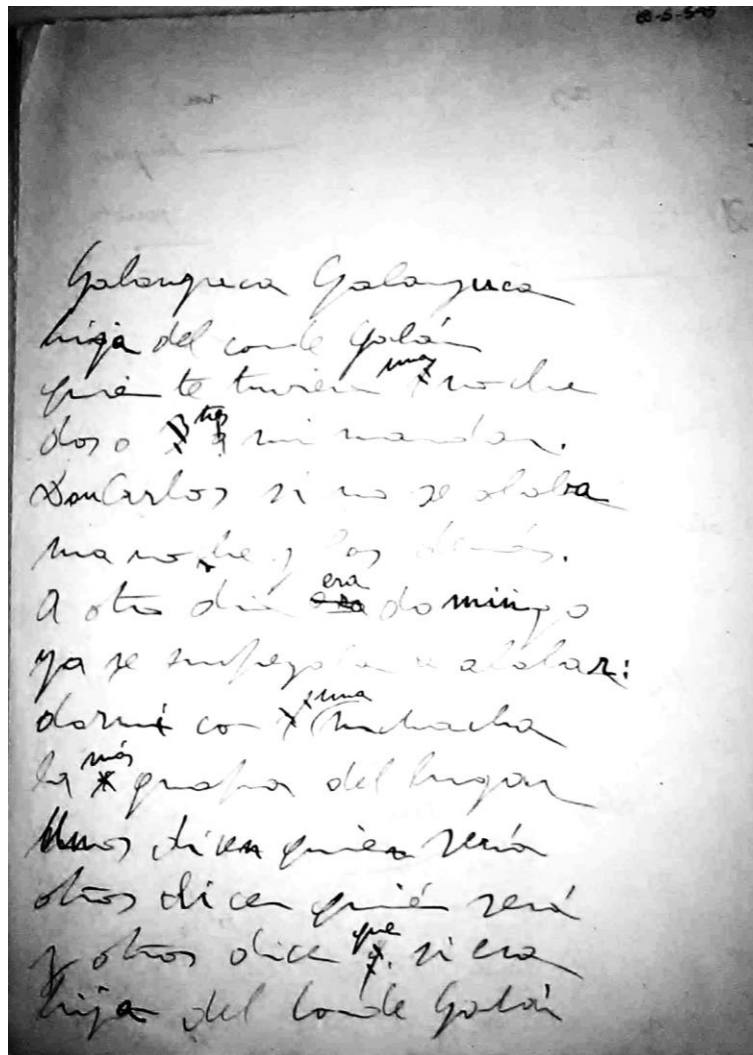 Galanzuca Galanzuca
hija del conde Galán
quién te tuviera una noche
dos o tres a mi mandar.
Don Carlos si no se alaba
una noche y las demás.
A otro día era domingo
ya se empezaba a alabar:
dormí con una muchacha
la más guapa del lugar
Unos dicen quien sería
otros dicen quién será
y otros dice que si era
hija del Conde Galán